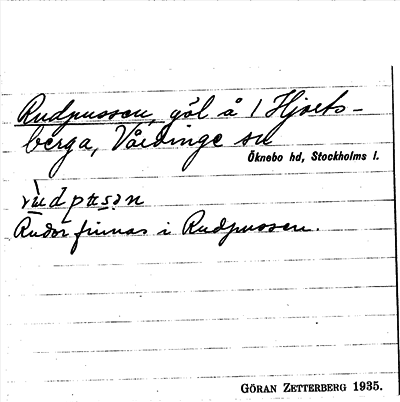 Rudpussen, göl å 1 Hjorts-
berga, Vårdinge sn
Öknebo hd, Stockholms l.
rùdpusən
Rudor finnas i Rudpussen.
GÖRAN ZETTERBERG 1935.